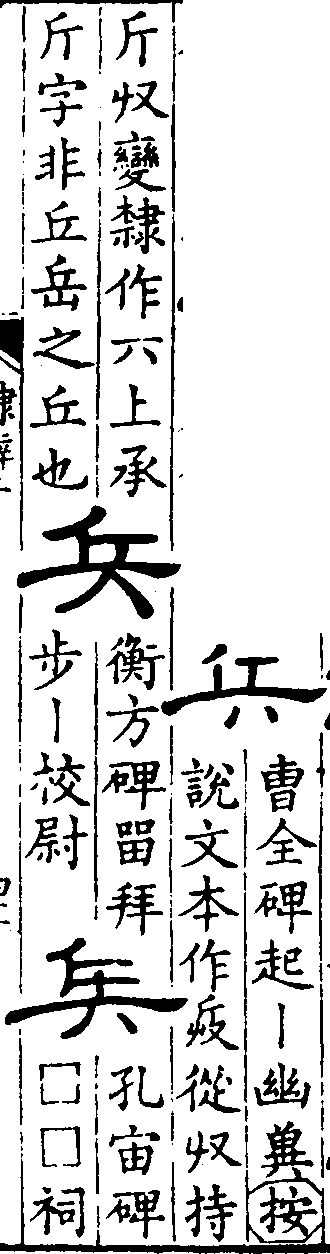 兵
曹全碑起丨幽兾按
說文本作從収持
斤収變隸作六上承
斤字非丘岳之丘也
兵
衡方碑畱拜
步丨校尉
兵
孔宙碑
□□祠